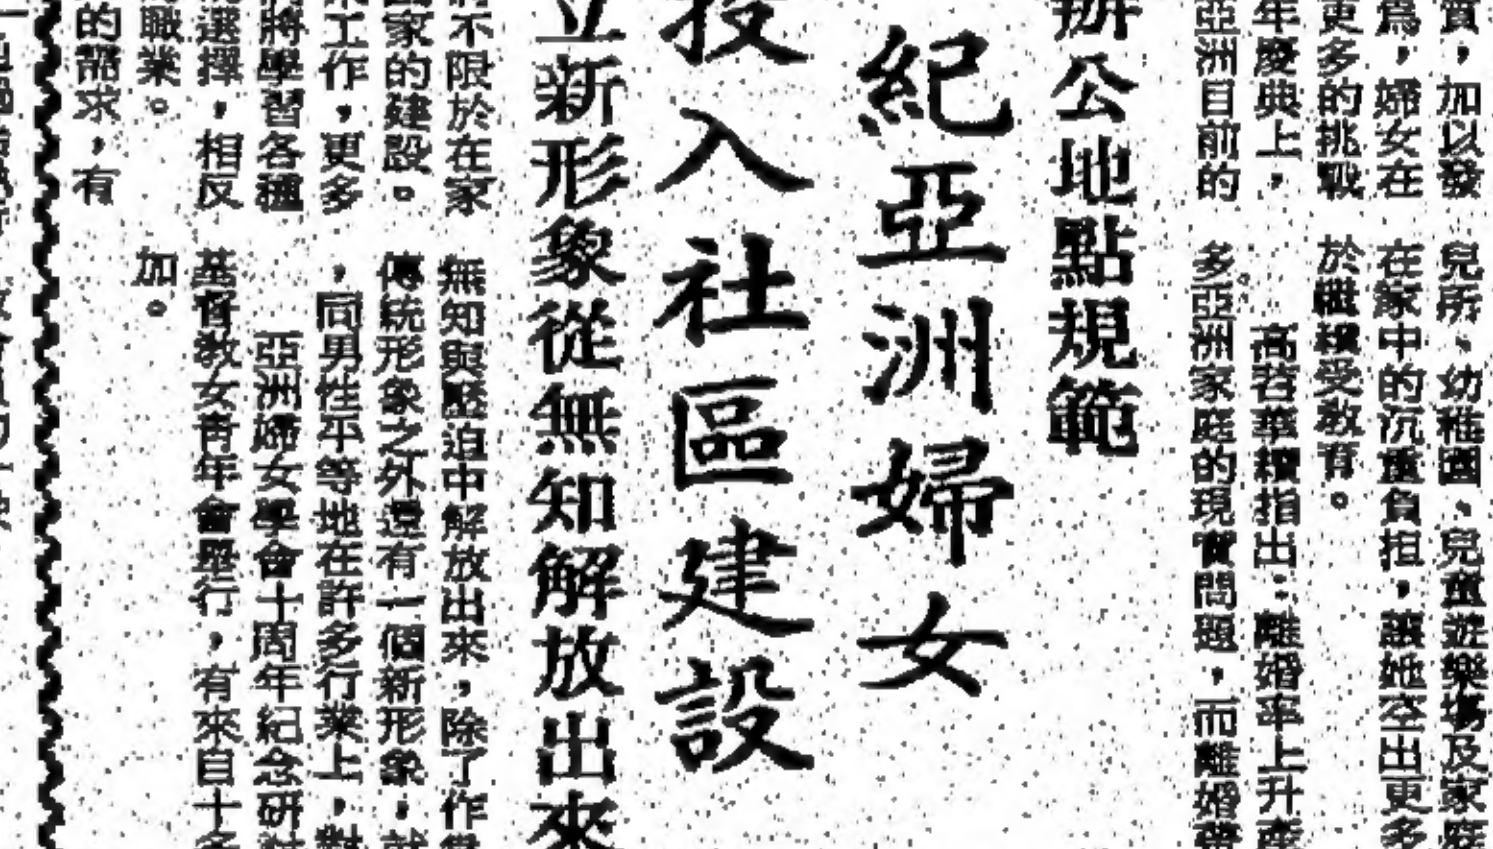 質，加以發
為，婦女在
更多的挑戰
年慶典上，
亞洲目前的
兒所、幼稚園、兒童遊樂場及家庭
在家中的沉重負担，讓她空出更多
於職接受教育。
高苕華續指出：離婚率上升產
多亞洲家庭的現實問題，而離婚帶
辦公地點規範
紀亞洲婦女
投入社區建設
立新形象從無知解放出來
不限於在家
家的建設。
工作，更多
將學習各種
選擇，相反
職業。
的需求，有
無知與壓迫中解放出來，除了作
傳統形象之外還有一個新形象，就
，同男性平等地在許多行業上，對
亞洲婦女學會十周年紀念研討
基督教女青年會舉行，有來自十多
加。